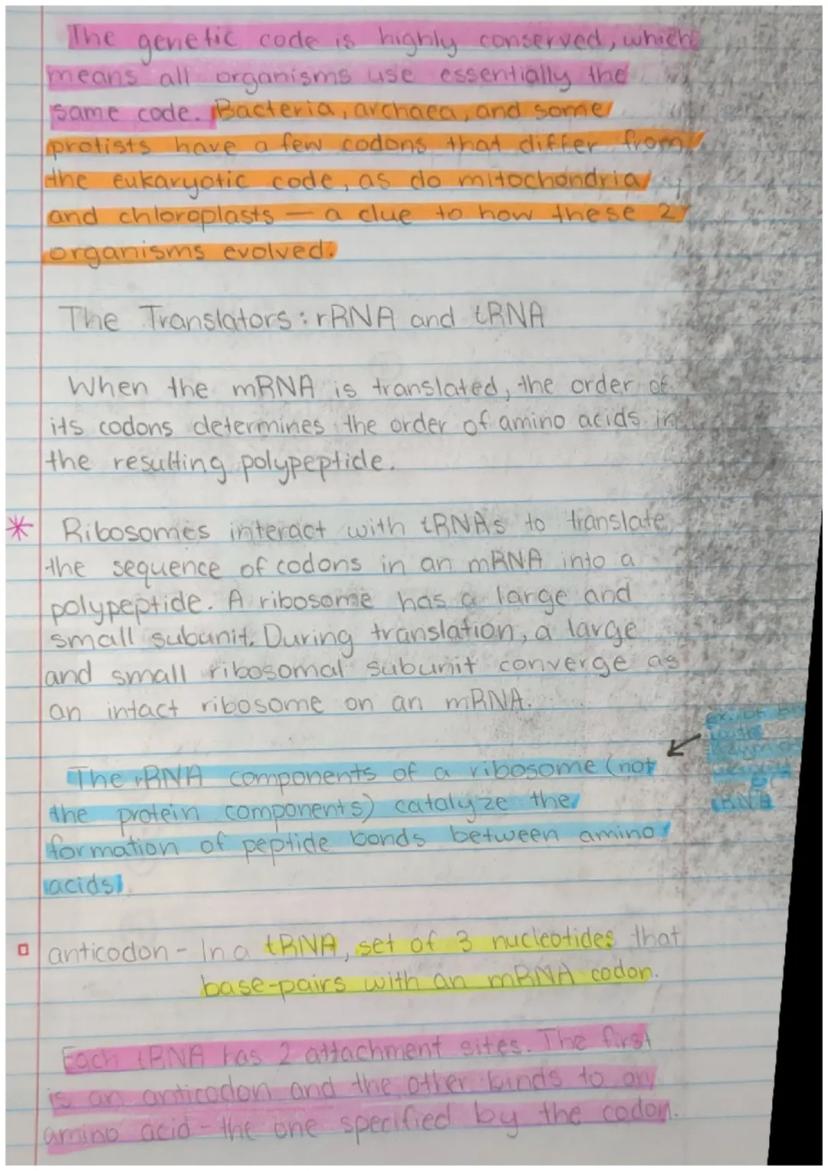 The genetic code is highly conserved, which
means all organisms use essentially the
same code. Bacteria, archaea, and some
protists have a few codons that differ from
the eukaryotic code, as do mitochondria
and chloroplasts — a clue to how these 2
organisms evolved.
The Translators: rRNA and tRNA
When the mRNA is translated, the order of
its codons determines the order of amino acids in
the resulting polypeptide.
* Ribosomes interact with tRNAs to translate
the sequence of codons in an mRNA into a
polypeptide. A ribosome has a large and
small subunit. During translation, a large
and small ribosomal subunit converge as
an intact ribosome on an mRNA.
The rRNA components of a ribosome (not
the protein components) catalyze the
formation of peptide bonds between amino
acids.
anticodon - In a tRNA, set of 3 nucleotides that
base-pairs with an mRNA codon.
Each tRNA has 2 attachment sites. The first
is an anticodon and the other binds to an
amino acid - the one specified by the codon.